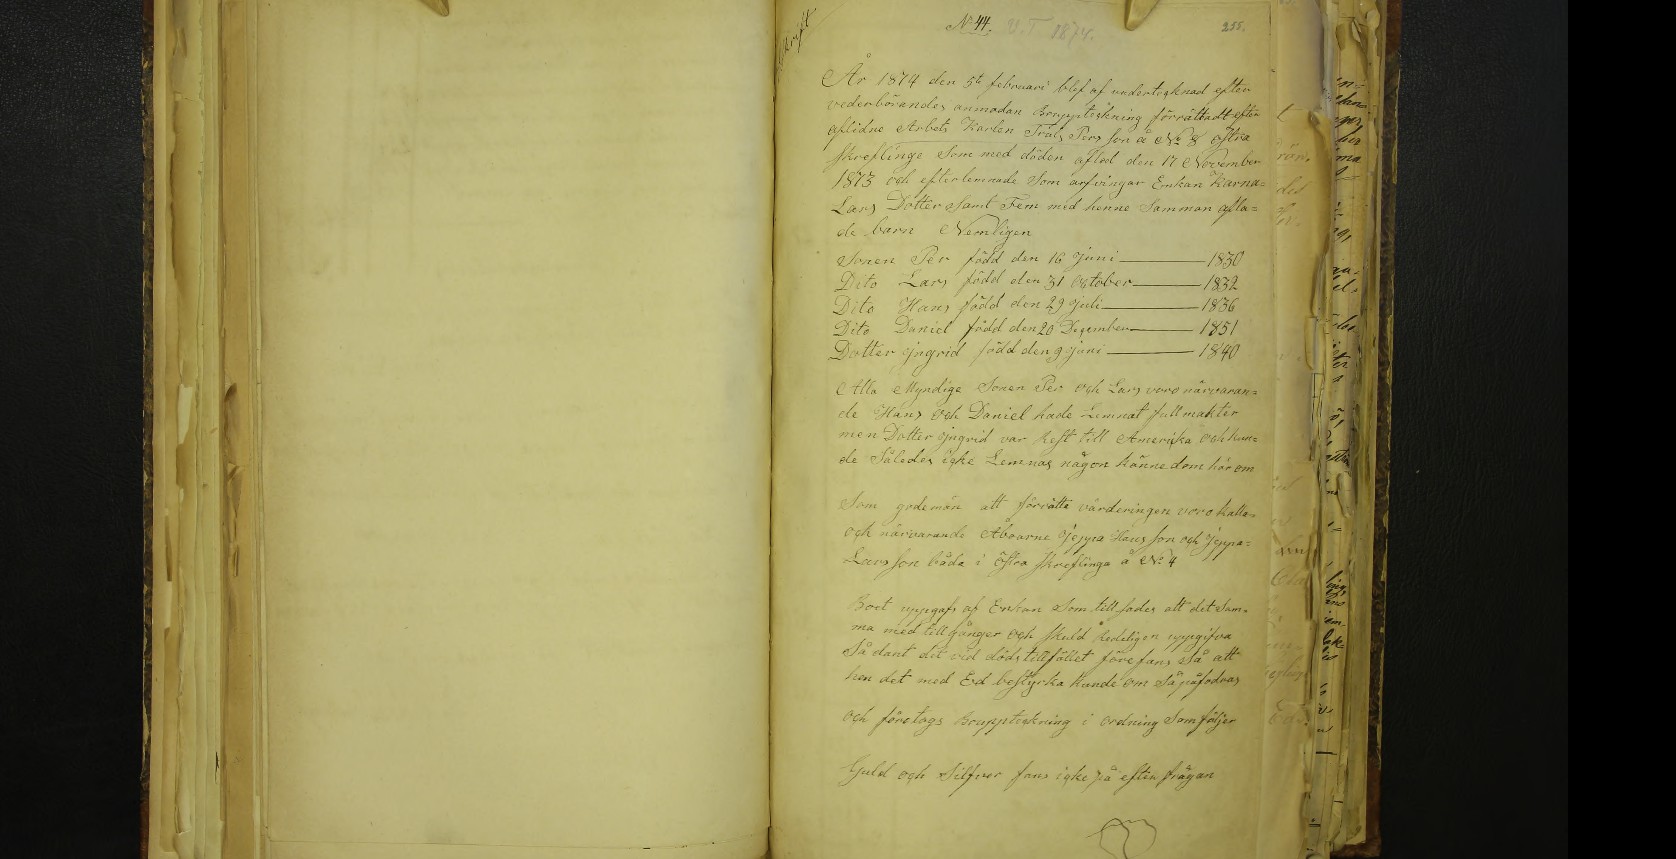 No 44. V.T 1874. 255.
År 1874 den 5te februari blef af undertegknad efter
vederbörandes anmodan Bouppteckning förrättadt efter
aflidne Arbets Karlen Trols Pers son å No 8 östra
Skreflinge Som med döden afled den 17 November
1873 och efterlemnade Som arfvingar Enkan Karna=
Lars Dotter Samt Fem med henne Samman afla=
de barn Nemligen
Sonen Per född den 16 Juni 1830
Dito Lars född den 31 October 1832
Dito Hans född den 29 Juli 1836
Dito Daniel född den 20 December 1851
Dotter Jngrid född den 9 Juni 1840
Alla Myndige Sonen Per och Lars voro närvaran=
de Hans och Daniel hade Lemnat fullmakter
men Dotter Jngrid var Rest till Amerika och kun=
de Således icke Lemnas någon känne dom här om
Som gode män att förrätta värderingen voro kalla-
och närvarande Åboarne Jeppa Hans son och Jeppa=
Lars son båda i östra Skreflinga å No 4
Boet uppgafs af Enkan Som till sades att det Sam-
ma med till gånger och skuld Redeligen uppgifva
Så dant det vid döds tillfället före fans Så att
hon det med Ed bestyrka kunde om Så påfodras
och företogs Bouppteckning i ordning Som följer
Guld och Silfver fans icke på efter frågan